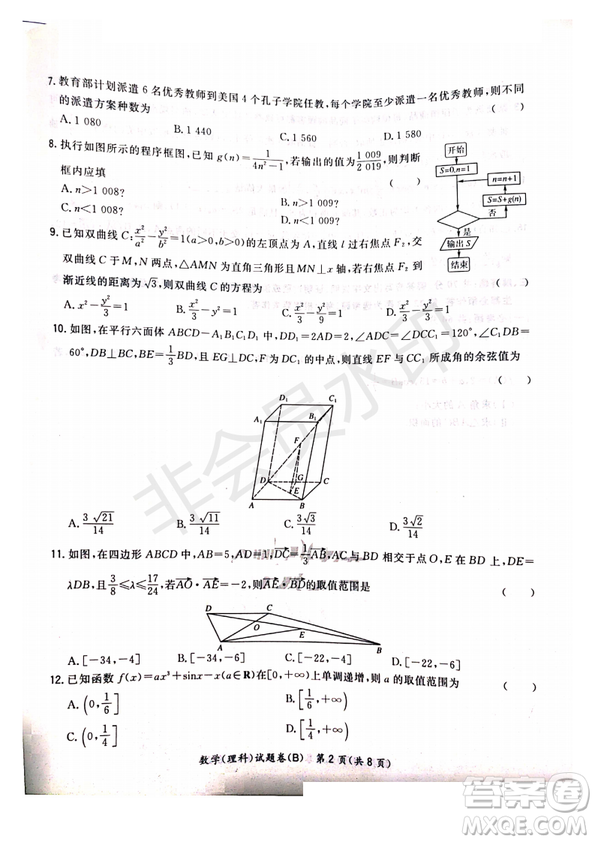 7. 教育部计划派遣 6 名优秀教师到美国 4 个孔子学院任教,每个学院至少派遣一名优秀教师,则不同
的派遣方案种数为 ( )
A. 1 080 B. 1 440 C. 1 560 D.
8. 执行如图所示的程序框图,已知 g(n)=1/(4n²−1),若输出的值为 1 009/2 019,则判断
框内应填 ( )
A. n>1 008? B. n>1 009?
C. n≥1 008? D. n≥1 009?
开始
S=0,n=1
n=n+1
S=S+g(n)
否
是
输出 S
结束
9. 已知双曲线 C: x²/a²−y²/b²=1(a>0,b>0)的左顶点为 A,直线 l 过右焦点 F₂,交
双曲线 C 于 M,N 两点,△AMN 为直角三角形且 l⊥x 轴,若右焦点 F₂ 到
渐近线的距离为√3,则双曲线 C 的方程为 ( )
A. x²−y²/3=1 B. x²/3−y²/3=1 C. x²/3−y²/9=1 D. x²/9−y²/3=1
10. 如图,在平行六面体 ABCD−A₁B₁C₁D₁ 中,DD₁=2AD=2,∠ADC=∠DCC₁=120°,∠C₁DB=
60°,BD⊥BC,BE=1/3DB,EG⊥DC,F 为 DC₁ 的中点,则直线 EF 与 CC₁ 所成角的余弦值为
( )
D₁ C₁
A₁ B₁
F
D G C
E
A B
A. 3√21/14 B. 3√11/14 C. 3√3/14 D. 3√2/14
11. 如图,在四边形 ABCD 中,AB=5,AD=1,DC=1/3AB,AC 与 BD 相交于点 O,E 在 BD 上,DE=
λDB,且 3/8≤λ≤17/24,若AO·AE=−2,则AE·BD的取值范围是 ( )
D C
O E
A B
A. [−34,−4] B. [−34,−6] C. [−22,−4] D. [−22,−6]
12. 已知函数 f(x)=ax³+sinx−x(a∈R)在[0,+∞)上单调增,则 a 的取值范围为 ( )
A. (0,1/6] B. [1/6,+∞)
C. (0,1/4] D. [1/4,+∞)
数学(理科)试题卷(B) 第 2 页(共 8 页)
非会员水印
作业精灵
MXQE.COM